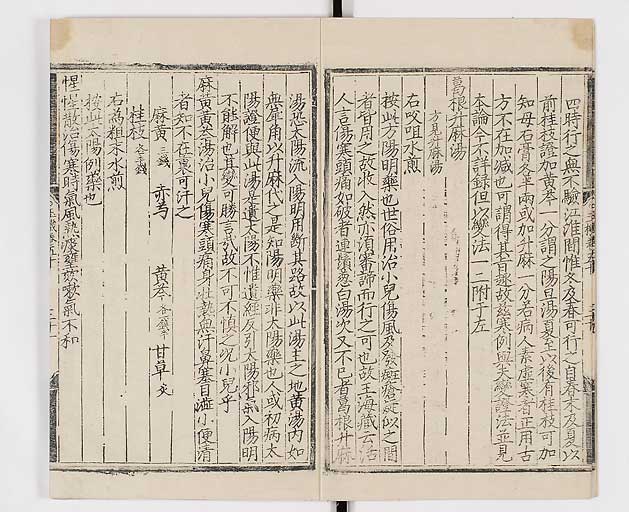 四時行之無不驗江淮間惟冬及春可行之自春末及夏至以
前桂枝證加黃芩一分謂之陽旦湯夏至以後有桂枝可加
知母石膏各半兩或加升麻一分若病人素虛寒者正用古
方不在加減也可謂得其旨趣故茲寒例與夫變證法並見
本論今不詳錄但以變法一二附于左
葛根升麻湯
方見升麻湯
右㕮咀水煎
按此方陽明藥也世俗用治小兒傷風及發斑瘡疑似之間
者皆用之故收入然亦須審諦而行之可也故王海藏云治
人言傷寒頭痛如破者連鬚葱白湯次又不已者葛根升麻
湯恐太陽流入陽明用斷其路故以此湯主之地黃湯內如
無犀角以升麻代之是知陽明藥非太陽藥也人或初病太
陽證便與此湯是遺太陽不惟遺經反引太陽邪氣入陽明
不能解也其變可勝言哉故不可不慎之况小兒乎
麻黃黃芩湯治小兒傷寒頭痛身壯熱無汗鼻塞目澁小便清
者知不在裏可汗之
麻黃 三錢 赤芍 黃芩 各二錢半 甘草 炙
桂枝 各半錢
右為粗末水煎
按此太陽例藥也
惺惺散治傷寒時氣風熱痰壅咳嗽氣不和